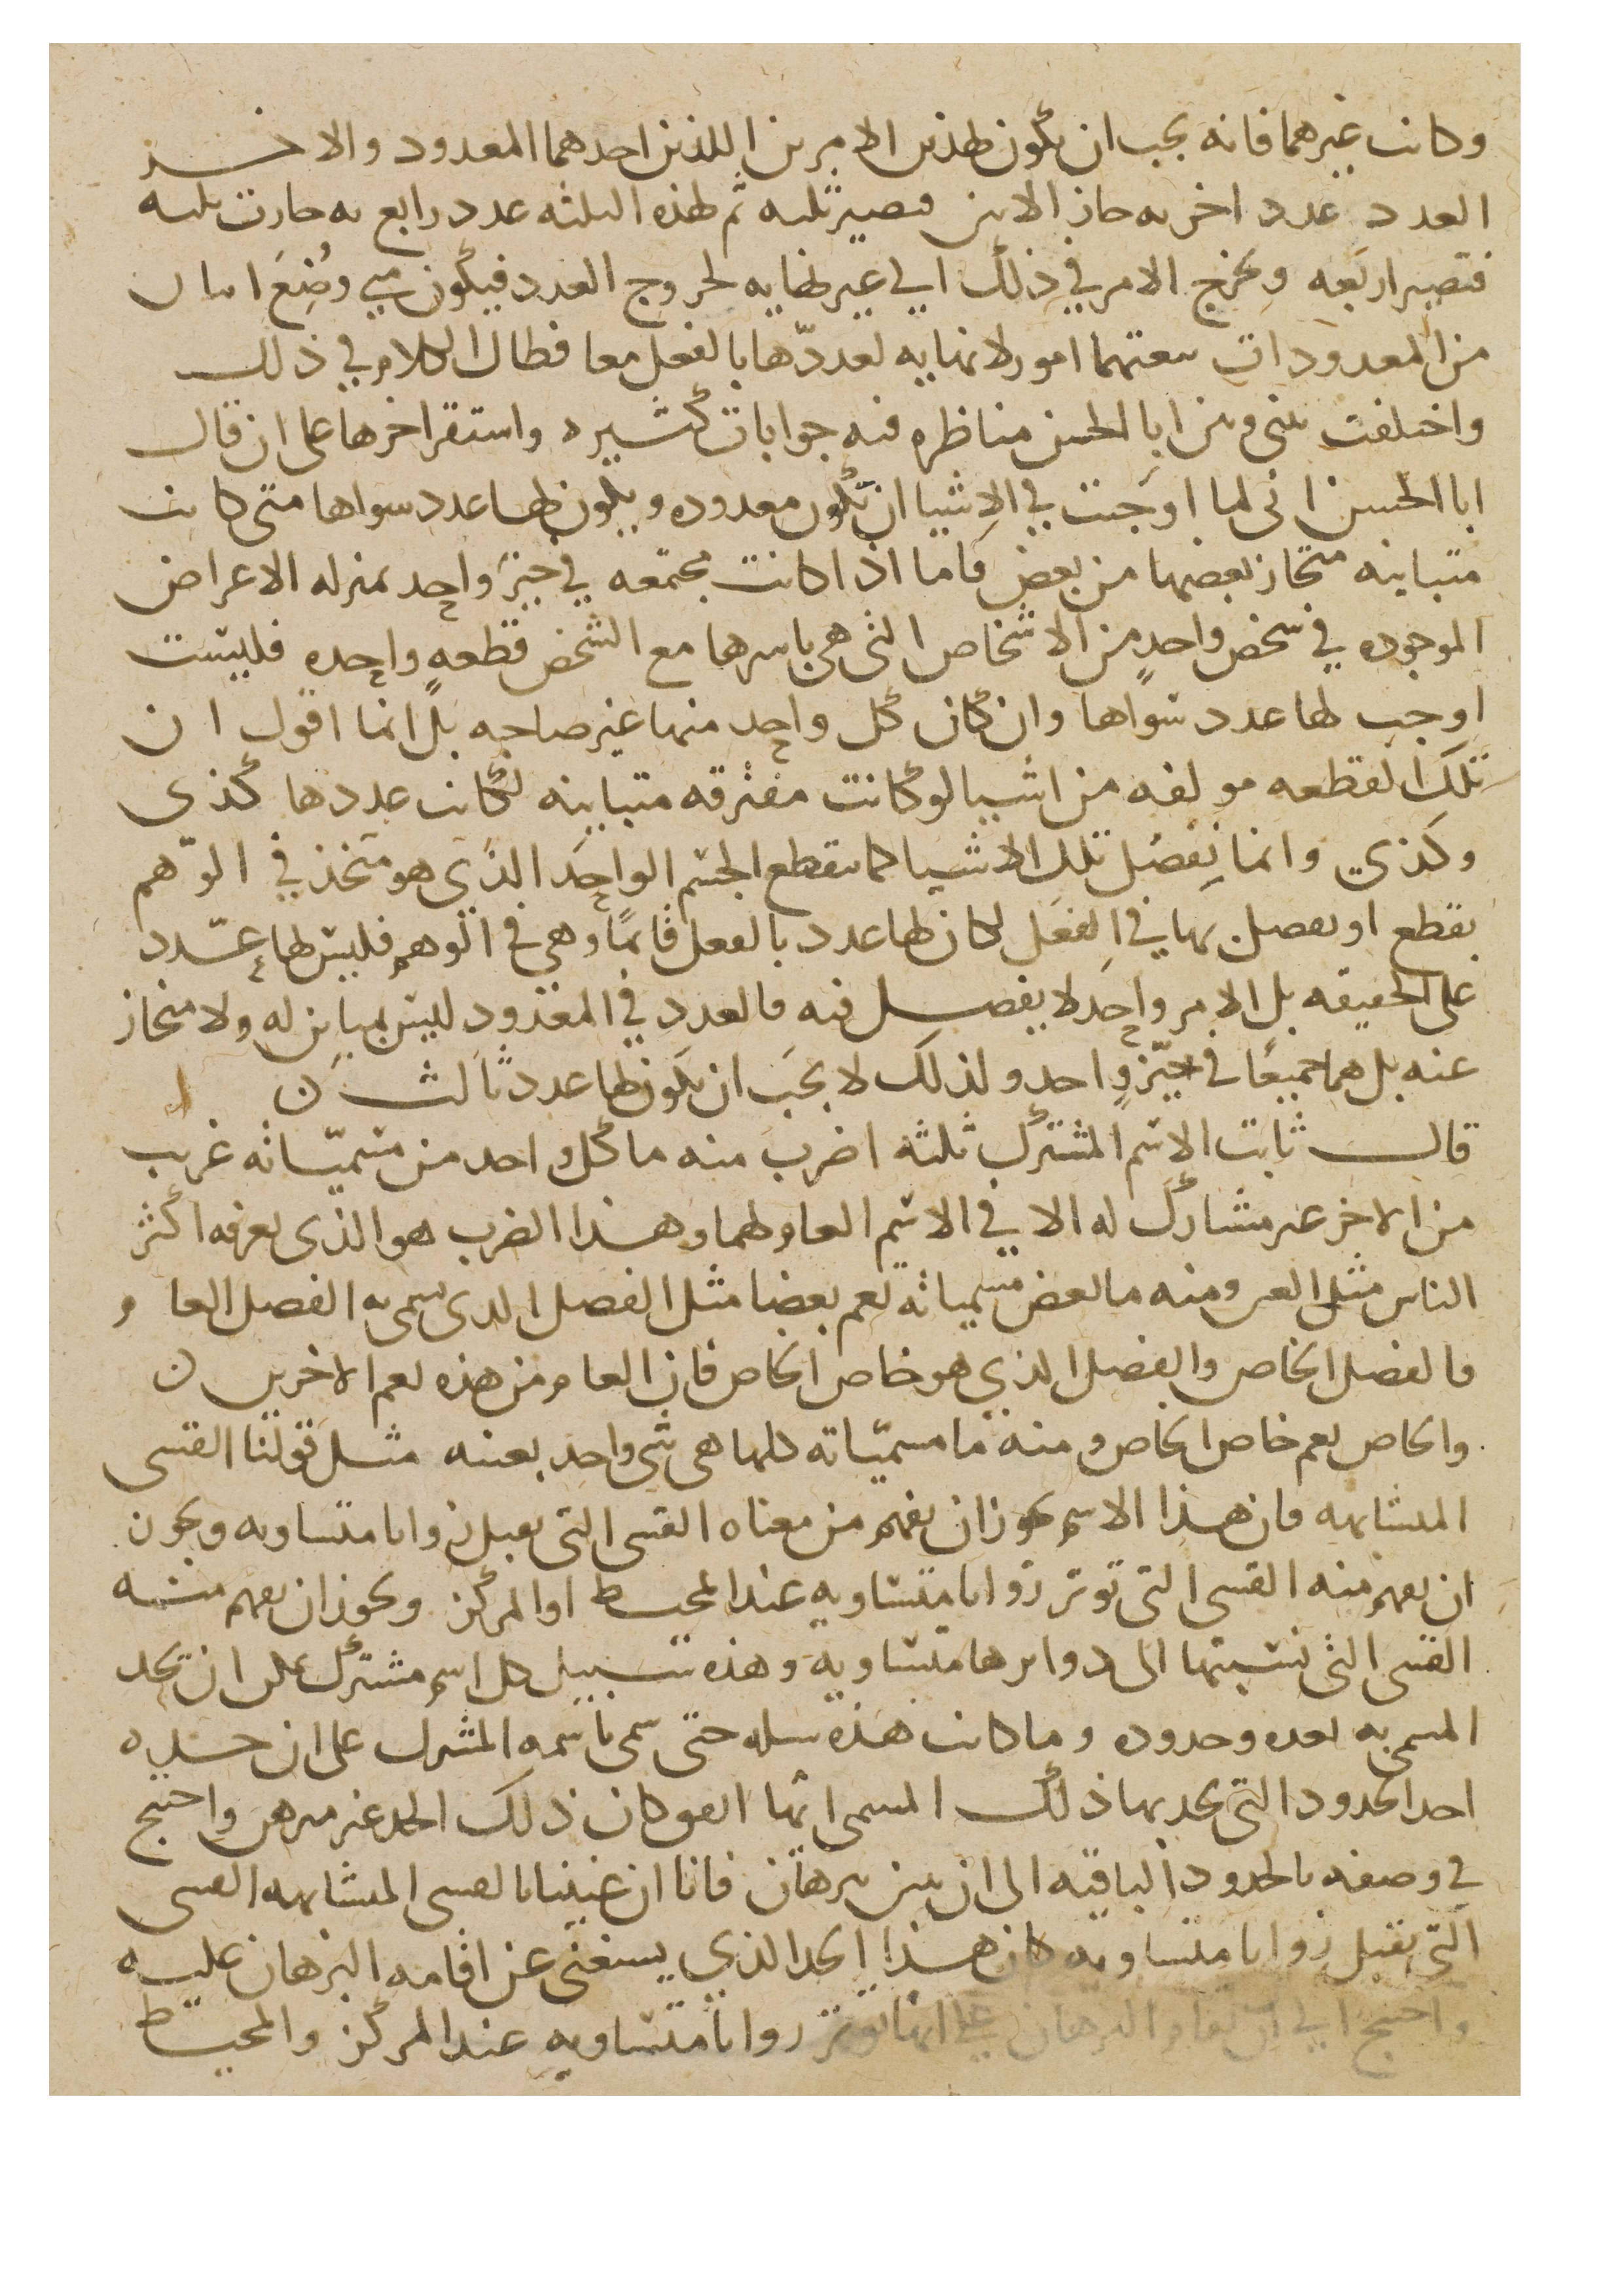 وكانت غيرهما فانه يجب ان يكون لهذين الامرين اللذين احدهما المعدود والاخر
العدد عدد اخر به صار الاثنين فتصير ثلثه ثم لهذه الثلثه عدد رابع به صارت ثلثه
فتصير اربعه ويخرج الامر في ذلك الي غير نهايه لخروج العدد فيكون متي وُضِعَ اثنان
من المعدودات تبعتهما امور لا نهايه لعددّها بالفعل معا فطال الكلام في ذلك
واختلفت بيني وبين ابا الحسن مناظره فيه جوابات كثيره واستقر اخرها على ان قال
ابا الحسن انى انما اوجبت في الاشيا ان تكون معدوده ويكون لها عدد سواها متى كانت
متباينه منحاز بعضها من بعض فاما اذا كانت مجتمعه في حيّز واحد بمنزله الاعراض
الموجوده في شخص واحدٍ من الاشخاص التى هى باسرها مع الشخص قطعهٍ واحده فليست
اوجب لها عدد سواها وان كان كل واحد منها غير صاحبه بل انما اقول ان
تلك القطعه مولفه من اشيا لو كانت مفترقه متباينه لكانت عددها كذى
وكذي وانما نفصّل تلك الاشيا كما نقطع الجسم الواحد الذي هو متخذ في الوّهم
بقطع او تفصل بها في الفعل لكان لها عدد بالفعل فامّا وهي في الوهم فليس لها عدد
على الحقيقه بل الامر واحد لا ينفصل فيه فالعدد في المعدود ليس بمباين له ولا منحاز
عنه بل هما جميعًا في حيّزٍ واحد ولذلك لا يجب ان يكون لها عدد ثالث ن
قال ثابت الاسم المشترك ثلثه اضرب منه ما كل واحد من مسميّاته غريب
من الاخر غير مشارك له الا في الاسم العام لهما وهذا الضرب هو الذى يعرفه اكثر
الناس مثل العين ومنه ما بعض مسمياته تعم بعضا مثل الفصل الذى يسمى به الفصل العام
فالفصل الخاص والفصل الذي هو خاص الخاص فان العام من هذه يعم الاخرين ن
والخاص يعم خاص الخاص ومنه ما مسميّاته كلها هى شى واحد بعينه مثل قولنا القسى
المتشابهه فان هذا الاسم يجوز ان يفهم من معناه القسى التى تقبل زوايا متساويه ويجوز
ان يفهم منه القسى التى توتر زوايا متساويه عند المحيط او المركز ويجوز ان يفهم منه
القسى التى نسبتها الى دوايرها متساويه وهذه سبيل كل اسم مشترك على ان يحد
المسمى به بعده وحدوده وما كانت هذه سبيله حتى سمى باسمه المشترك على ان حده
احد الحدود التى يحد بها ذلك المسمى ايّها اتفق كان ذلك الحد غير مبرهن واحتيج
في وصفه بالحدود الباقيه الى ان يبين ببرهان فانا ان عنينا بالقسى المتشابهه القسى
التى تقبل زوايا متساويه كان هذا الحد الذي يستغنى عن اقامه البرهان عليه
واحتيج الي ان يقام البرهان علي انها توتر زوايا متساويه عند المركز والمحيط